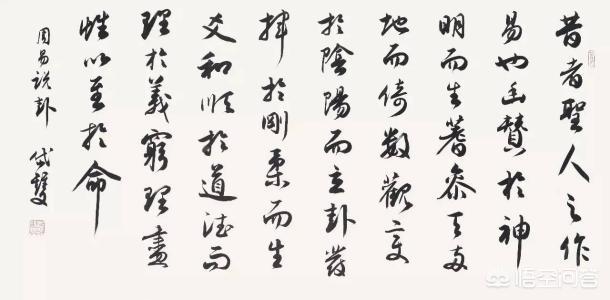 昔者聖人之作
易也幽贊於神
明而生蓍參天兩
地而倚數觀變
於陰陽而立卦發
揮於剛柔而生
爻和順於道德而
理於義窮理盡
性以至於命
周易説卦
悟空问答